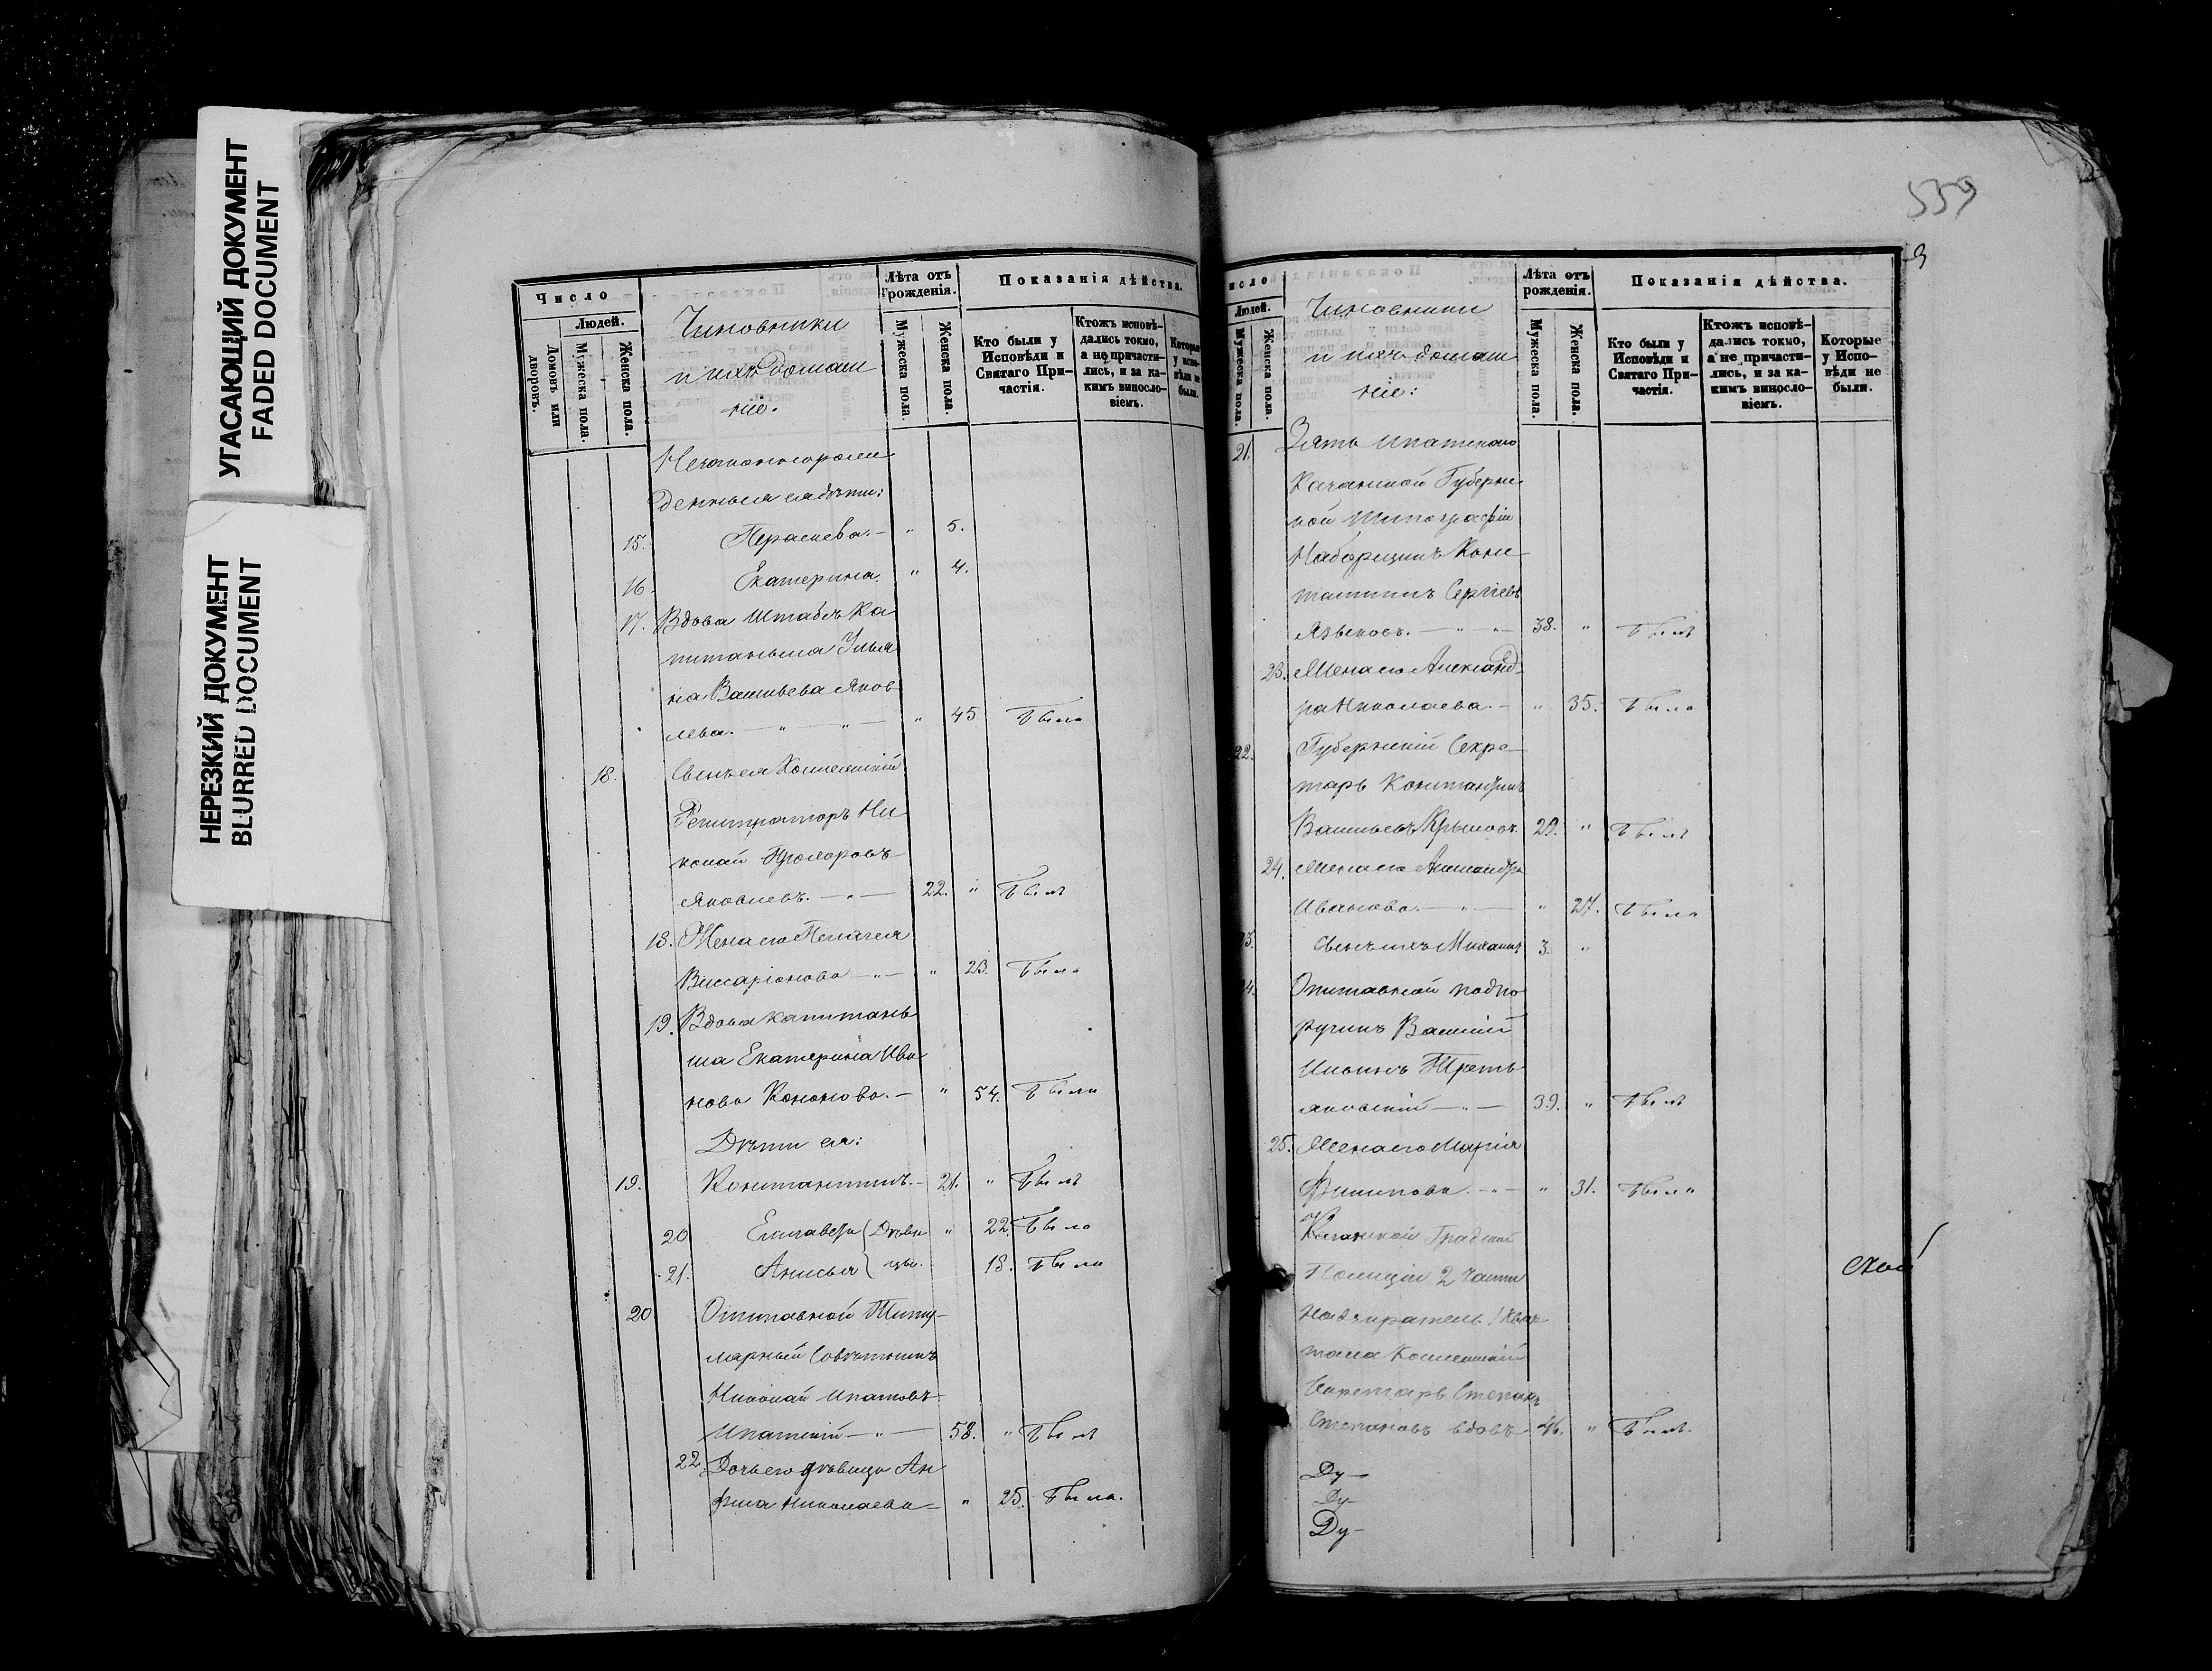 УГАСАЮЩИЙ ДОКУМЕНТ
FADED DOCUMENT
НЕРЕЗКИЙ ДОКУМЕНТ
BLURRED DOCUMENT
Число
Людей.
Домовъ или дворовъ.
Мужеска пола.
Женска пола.
Чиновники
и ихъ домаш
ніе.
Лѣта отъ рожденія.
Мужеска пола.
Женска пола.
Показанія дѣйства.
Кто были у Исповѣди и Святаго При-частія.
Ктожъ исповѣ-дались токмо, а не причасти-лись, и за ка-кимъ винос­ло-віемъ.
Которые у испо-вѣди не были.
Незаконнорож
денныя ея дѣти:
15. Параскева. — " 5.
16. Екатерина. " 4.
17. Вдова Штабсъ Ка
питанша Улья
на Васильева Яков
лева. — " — " — " 45 Была
18. Сынъ ея Коллежскій
Регистраторъ Ни
колай Прохоровъ
Яковлевъ. — " — 22. " Былъ
18. Жена его Пелагея
Виссаріонова — " — " 23. Была
19. Вдова капитан
ша Екатерина Ива
нова Кононова. — " 54. Была
Дѣти ея:
19. Константинъ. — 21. " Былъ
20 Елисавета Дѣви " 22. Была
21. Анисья цы. 18. Была
20 Отставной Титу-
лярный Совѣтникъ
Николай Ипатовъ
Ипатскій — " — 58. " Былъ
22. Дочь его дѣвица Ан
фиса Николаева — " 25. Была.
559
Число
Людей.
Мужеска пола.
Женска пола.
Чиновники
и ихъ домаш
ніе:
Лѣта отъ рожденія.
Мужеска пола.
Женска пола.
Показанія дѣйства.
Кто были у Исповѣди и Святаго При-частія.
Ктожъ исповѣ-дались токмо, а не причасти-лись, и за ка-кимъ винос­ло-віемъ.
Которые у Испо-вѣди не были.
21. Зять Ипатскаго
Казанской Губерн
кой Типографіи
Наборщикъ Конс
тантинъ Сергѣевъ
Языковъ. — " — " — 38. " Былъ
23. Жена его Александ-
ра Николаева. — " 35. Была
22. Губернскій Секре-
тарь Константинъ
Васильевъ Крыловъ. 29. " Былъ
24. Жена его Александра
Иванова. — " — " 27. Была
23. Сынъ ихъ Михаилъ 3. "
24. Отставной подпо
ручикъ Василій
Ильинъ Треть
яковскій — " — 39. " Былъ
25. Жена его Марія
Филипова. — " — " 31. Была
Казанской Градской
Полиціи 2 части
Надзиратель 1 квар
тала Коллежскій
Секретарь Степанъ
Степановъ вдовъ 46. " Былъ.
Ду-
Ду-
Ду-
ской